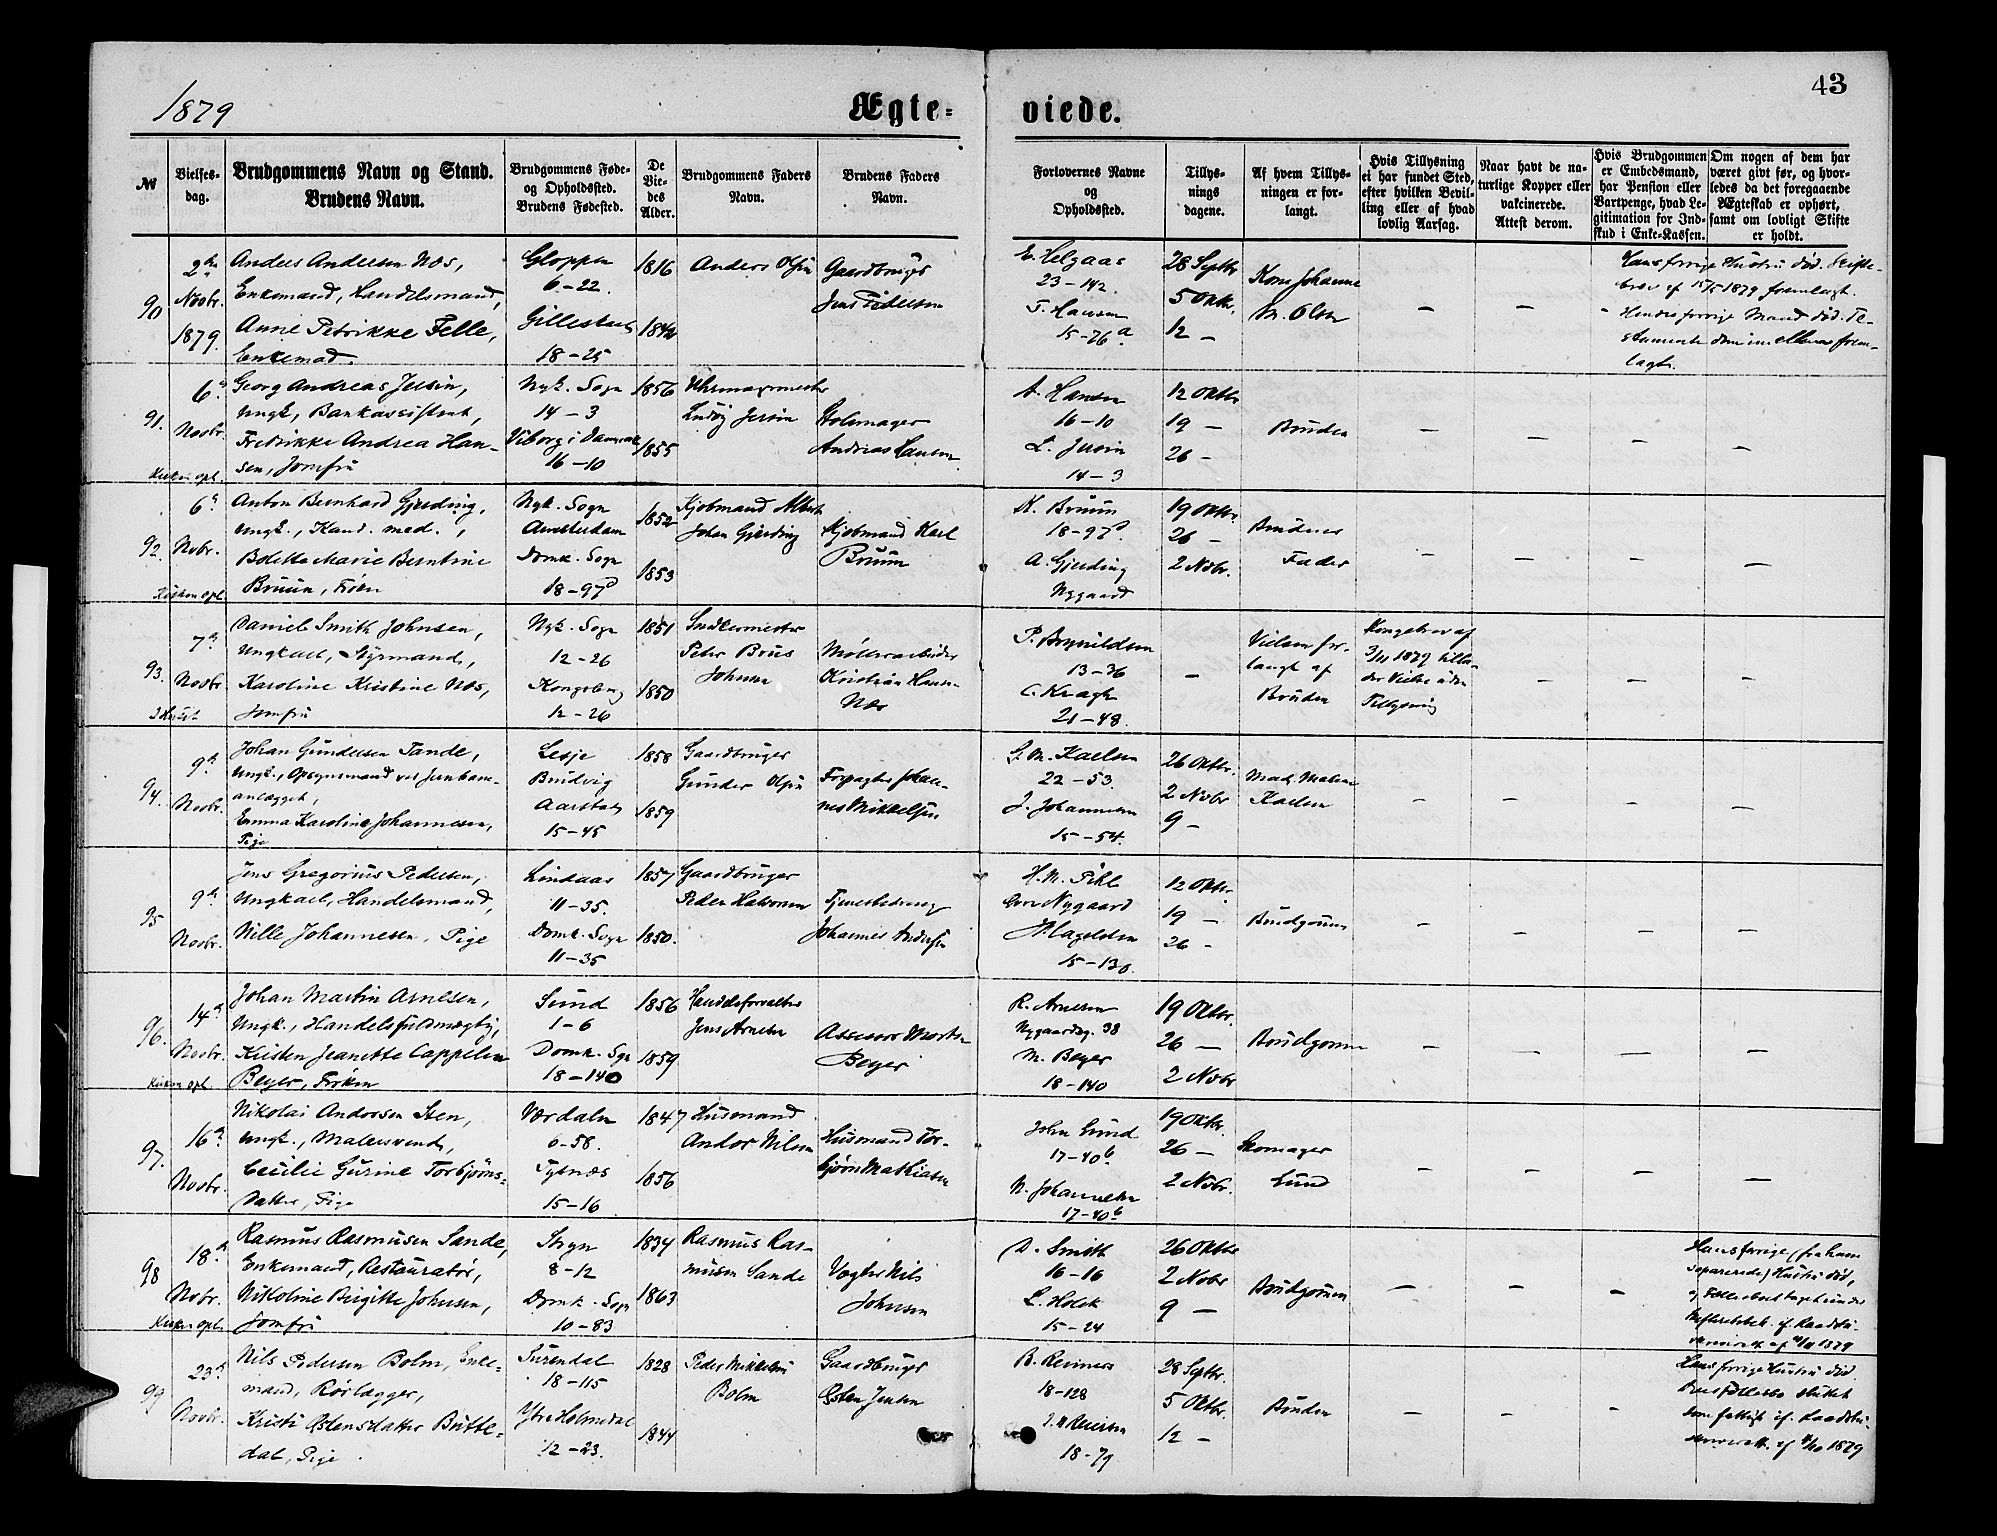 1879
Ægte-
viede.
43
№
Vielses-
dag.
Brudgommens Navn og Stand.
Brudens Navn.
Brudgommens Føde-
og Opholdssted.
Brudens Fødested.
De
Vie-
des
Alder.
Brudgommens Faders
Navn.
Brudens Faders
Navn.
Forlovernes Navne
og
Opholdssted.
Tillys-
nings
dagene.
Af hvem Tillys-
ningen er for-
langt.
Hvis Tillysning
ei har fundet Sted,
efter hvilken Bevil-
ling eller af hvad
lovlig Aarsag.
Naar havt de na-
turlige Kopper eller
vakcinerede.
Attest derom.
Hvis Brudgommen
er Embedsmand,
har Pension eller
Vartpenge, hvad Le-
gitimation for Ind-
skud i Enke-Kassen.
Om nogen af dem har
været givt før, og hvor-
ledes da det foregaaende
Ægteskab er ophørt,
samt om lovligt Skifte
er holdt.
90
2den
Novbr.
1879.
Anders Andersen Næs,
Enkemand, Handelsmand,
Anne Petrikke Felle,
Gloppen
6-22.
18-25
1816
1842
Anders Olsen
Gaardbruger
Jens Pedersen
E. Helgaas
23-142.
T. Hansen
15-76a
28 Septbr
5 Oktbr.
12 -
Kone Johanne
M. Olsen
-
-
Hans forrige Hustru død. Skifte-
brev af 15/5 1879 fremlagt.
Hendes forrige Mand død. Te-
lagt.
91.
6te
Novbr.
Kirken opl.
Georg Andreas Jersin,
Ungk., Bankassistent,
Fredrikke Andrea Han-
sen, Jomfru
Nyk. Sogn
14-3
Viborg i Danmark
16-10
1856
1855
Uhrmagermester
Ludvig Jersin
Stolemager
Andreas Hansen
A. Hansen
16-10
L. Jersin
14-3
12 Oktbr
19 -
26 -
Bruden
-
-
-
-
92.
6te
Nobr.
Kirken opl.
Anton Bernhard Gjerding,
Ungk., Kand. med.,
Bolette Marie Berntine
Bruun, Frøken
Nyk. Sogn
Amsterdam
Domk. Sogn
18-97d
1852
1853
Kjøbmand Albert
Johan Gjerding
Kjøbmand Karl
Bruun
K. Bruun
18-97d.
A. Gjerding
Nygaard
19 Oktbr.
26 -
2 Nobr.
Brudens
Fader
-
-
-
-
93.
7de
Novbr.
I Huset
Daniel Smith Johnsen,
Ungkarl, Styrmand,
Karoline Kristine Næs,
Jomfru
Nyk. Sogn
12-26
Kongsberg
12-26
1851
1850
Snedkermester
Peter Brus
Johnsen
Møllerarbeider
Kristian Hansen
Næs
P. Brynildsen
13-36
C. Kragh
21-48.
-
Vielsen for-
langt af
Bruden
Kongebrev af
3/11 1879 tilla-
der Vielse uden
Tillysning
-
-
-
94.
9de
Novbr.
Johan Gundersen Tande,
Ungk., Opsynsmand ved Jernbane-
anlægget,
Emma Karoline Johannesen,
Pige
Lesje
Brudvig
Aarstad
15-45
1858
1859
Gaardbruger
Gunder Olsen
Forpagter Johan-
nes Mikkelsen
J. M. Karlsen
22-53.
J. Johannesen
15-54.
26 Oktbr.
2 Nobr
9 -
Mad. Malene
Karlsen
-
-
-
-
95
9de
Novbr.
Jens Gregorius Pedersen,
Ungkarl, Handelsmand,
Nille Johannesen, Pige
Lindaas
11-35.
Domk. Sogn
11-35
1857
1850.
Gaardbruger
Peder Halvorsen
Tjenestedreng
Johannes Andersen
H. M. Pihl
Øvre Nygaard
15-130.
12 Oktbr.
19 -
26 -
Brudgommen
-
-
-
-
96.
14de
Novbr.
Kirken opl.
Johan Martin Arnesen,
Ungk., Handelsfuldmægtig,
Kristen Jeanette Cappelen
Beyer, Frøken
Sund
1-6
Domk. Sgn
18-140
1856
1859
Handelsforvalter
Jens Arnesen
Assessor Morten
Beyer
R. Arnesen
Nygaardsg. 38
M. Beyer
18-140
19 Oktbr.
26 -
2 Nobr
Brudgommen
-
-
-
-
97.
16de
Novbr.
Nikolai Andorsen Sten,
Ungk., Malersvend,
Cecilie Gurine Torbjørns-
datter, Pige
Værdalen
6-58.
Sysnæs
15-16
1847
1856
Husmand
Andor Nilsen
Husmand Tor-
bjørn Mathiasen
John Lund
17-40b
N. Johannesen
17-40b
19 Oktbr.
26 -
2 Nobr.
Skomager
Lund
-
-
-
-
98
18de
Novbr.
Kirken opl.
Rasmus Rasmusen Sande,
Enkemand, Restauratør,
Nikoline Birgitte Johnsen,
Jomfru
Stryn
8-12
Domk. Sogn
10-83
1834
1863
Rasmus Ras-
musen Sande
Vægter Nils
Johnsen
D. Smith
16-16
L. Holck
15-24
26 Oktbr
2 Novbr
9 -
Brudgommen
-
-
-
Hans forrige, fra ham
separerede, Hustru død,
99
23de
Novbr.
Nils Pedersen Bolm, Enke-
mand, Rørlægger,
Kristi Østensdatter Butte-
dal, Pige
Surendal
18-115
Ytre Holmedal
12-23.
1828
1844
Peder Mikkelsen
Bolm
Gaardbruger
Østen Jensen
B. Reimers
18-128
18-79
28 Septbr.
5 Oktbr.
12 -
Bruden
-
-
-
Hans forrige Hustru død.